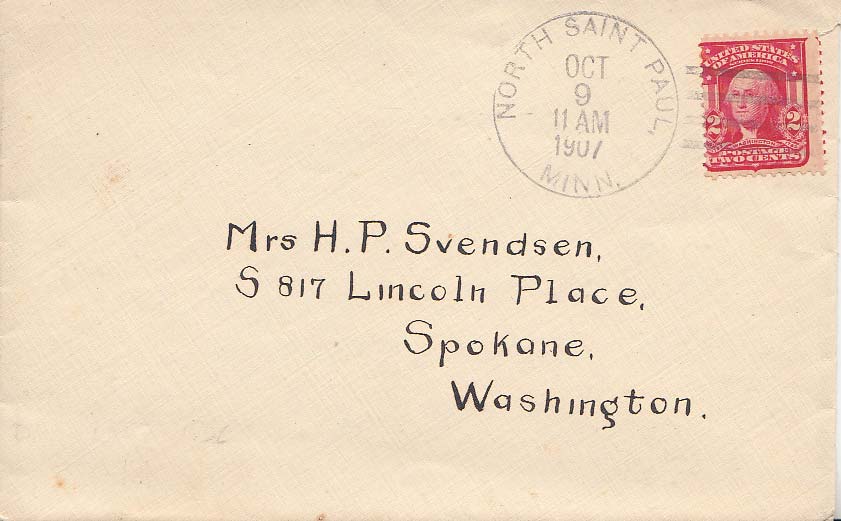 NORTH SAINT PAUL,
OCT
9
11 AM
1907
MINN.
UNITED STATES
OF AMERICA
2 2
WASHINGTON
POSTAGE
TWO CENTS
Mrs H. P. Svendsen,
S 817 Lincoln Place,
Spokane,
Washington.